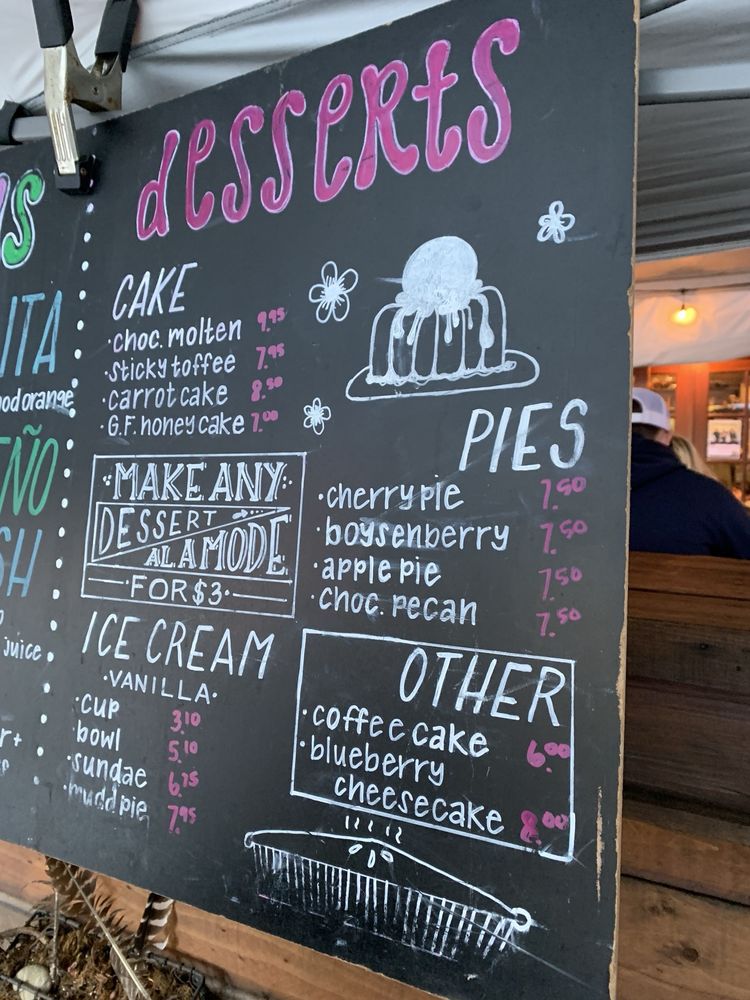 desserts
CAKE
·choc. molten 9.95
·sticky toffee 7.95
·carrot cake 8.50
·G.F. honey cake 7.00
·MAKE ANY·
DESSERT
AL A MODE
FOR $3·
ICE CREAM
·VANILLA·
·cup 3.10
·bowl 5.10
·sundae 6.75
·mudd pie 7.95
PIES
·cherry pie 7.50
·boysenberry 7.50
·apple pie 7.50
·choc. pecan 7.50
OTHER
·coffee cake 6.00
·blueberry
cheesecake 8.00
ITA
ood orange
ÑO
SH
juice